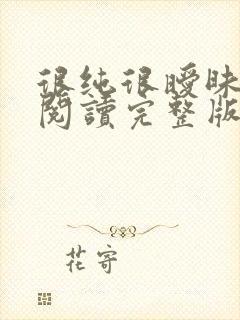 很純很曖昧
閱讀完整版
花寄